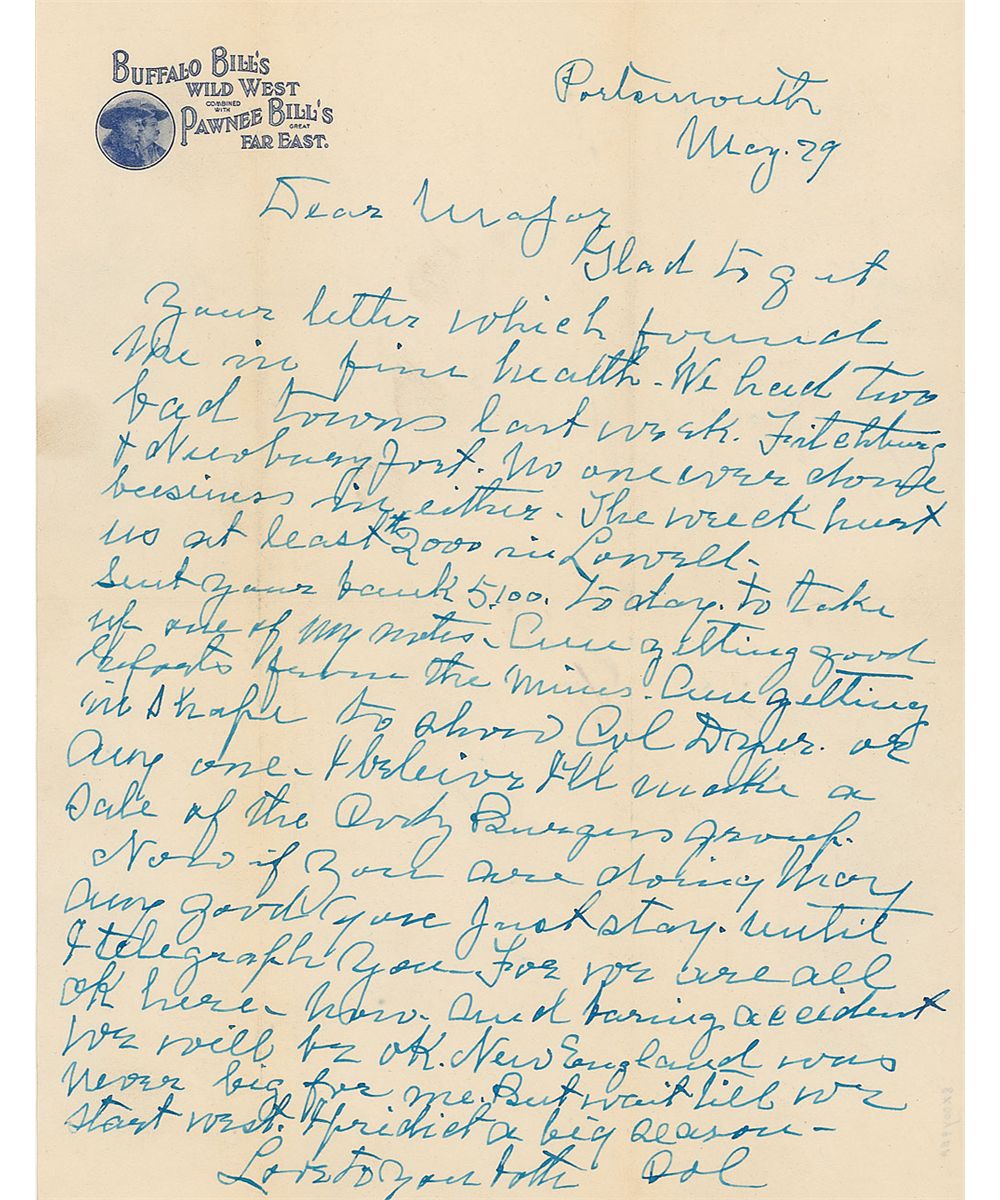 BUFFALO BILL'S
WILD WEST
COMBINED
WITH
PAWNEE BILL'S
GREAT
FAR EAST.
Portsmouth
May. 29
Dear Major
Glad to get
Your letter which found
me in fine health - We had two
bad towns last week. Fitchburg
& Newburyport. No one ever done
business in either - The wreck hurt
us at least $2000 in Lowell -
Sent your bank 5,100. today. to take
up one of my notes - Am getting good
reports from the mines - Am getting
in shape to show Col Dyer. or
any one - I beleive I'll make a
sale of the Cody Burgess group.
Now if you are doing Mary
any good you just stay. until
I telegraph you - For we are all
OK here - now. And baring accident
we will be OK. New England was
never big for me. But wait till we
start west. I predict a big season -
Love to you both Col